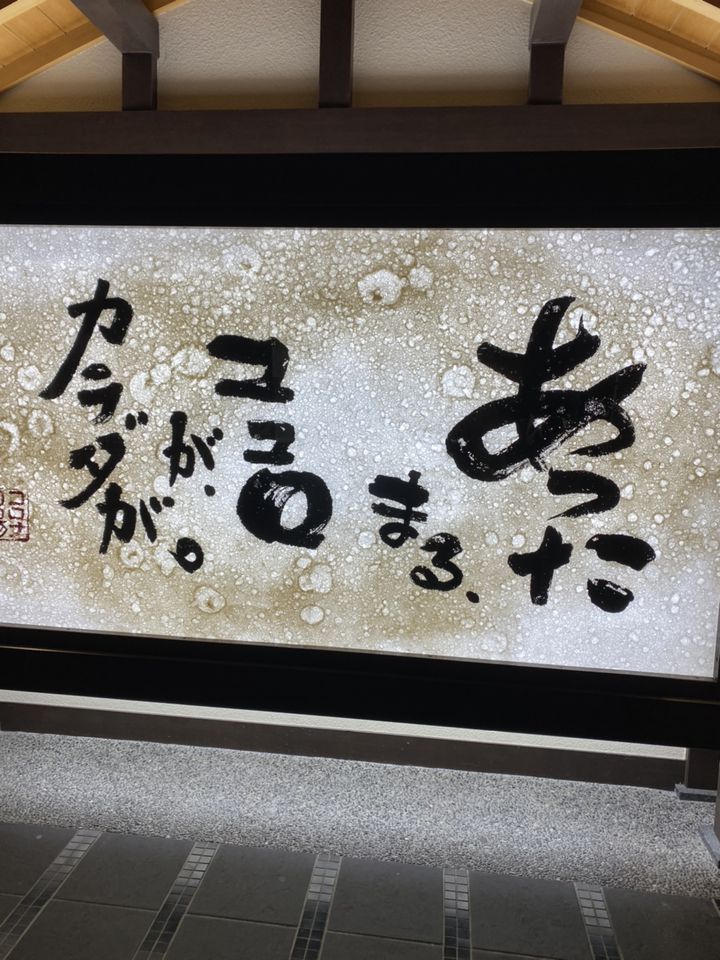 あったまる、
ココロが、
カラダが。